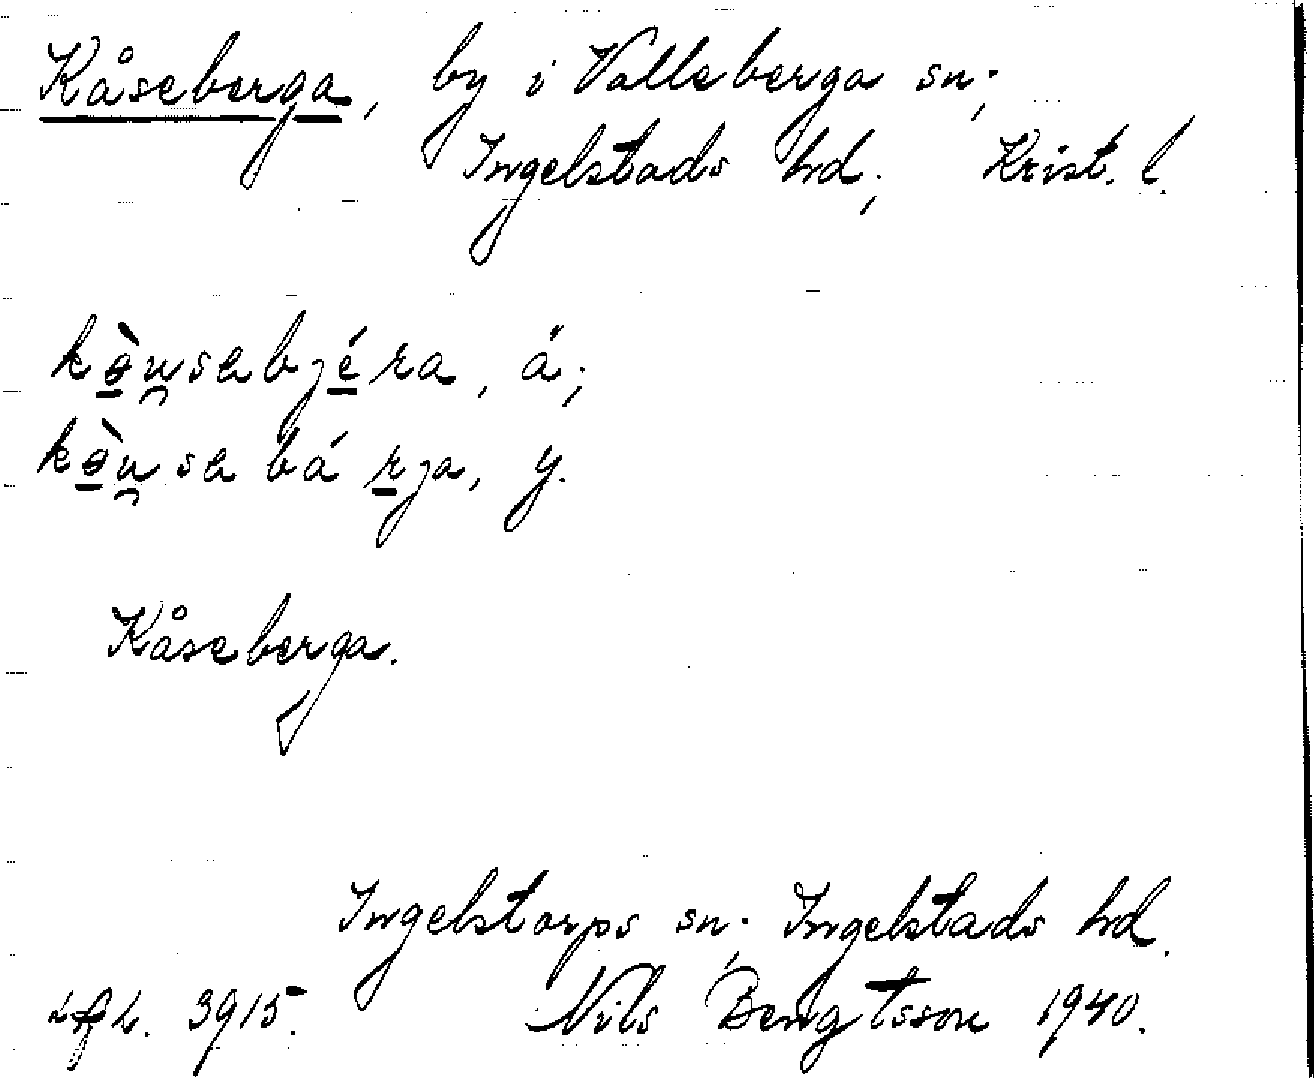 Kåseberga, by i Valleberga sn.,
Ingelstads hd., Krist. l.
kə̀u̯sabjéra, ä.;
kə̀u̯sabárja, y.
Kåseberga.
Ingelstorps sn., Ingelstads hd.
3915. Nils Bengtsson 1940.